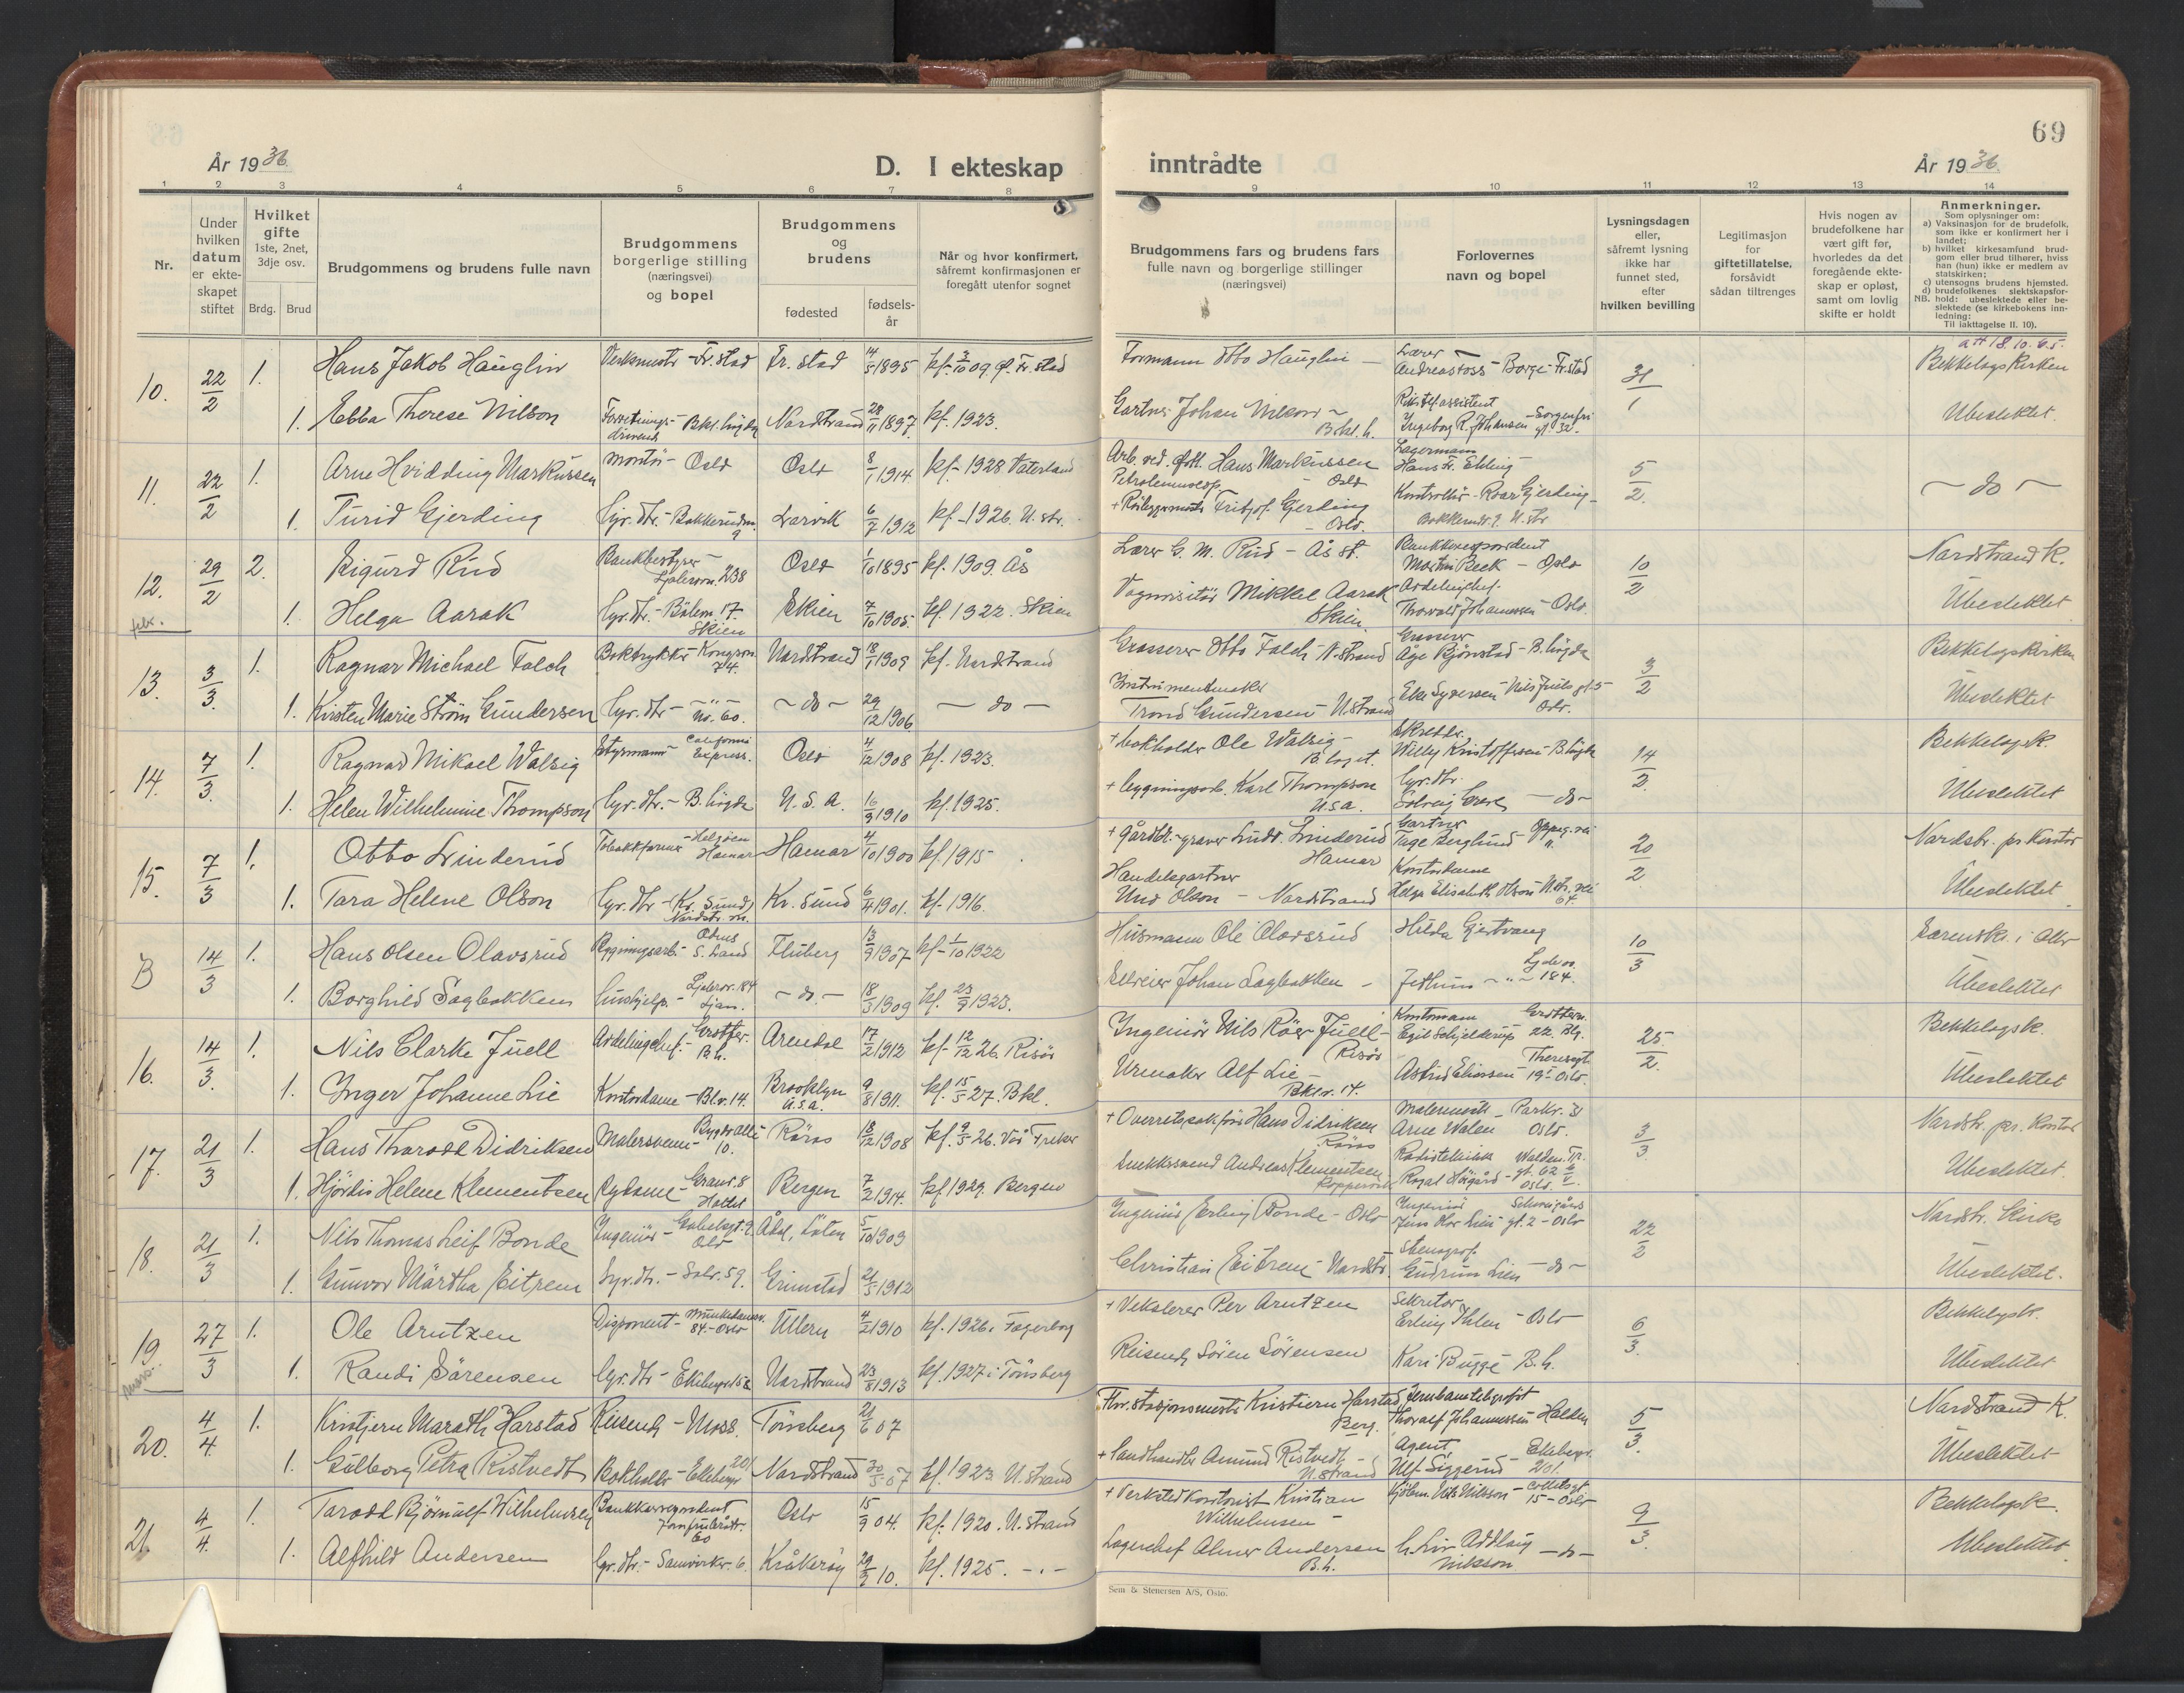 69
År 1936.
D. I ekteskap inntrådte
År 1936.
1 2 3 4 5 6 7 8 9 10 11 12 13 14
Nr.
Under hvilken datum er ekteskapet stiftet
Hvilket gifte
1ste, 2net, 3dje osv.
Brdg. Brud
Brudgommens og brudens fulle navn
Brudgommens borgerlige stilling (næringsvei) og bopel
Brudgommens og brudens
fødested
fødsels-år
Når og hvor konfirmert, såfremt konfirmasjonen er foregått utenfor sognet
Brudgommens fars og brudens fars fulle navn og borgerlige stillinger (næringsvei)
Forlovernes navn og bopel
Lysningsdagen eller, såfremt lysning ikke har funnet sted, efter hvilken bevilling
Legitimasjon for giftetillatelse, forsåvidt sådan tiltrenges
Hvis nogen av brudefolkene har vært gift før, hvorledes da det foregående ekteskap er opløst, samt om lovlig skifte er holdt
Anmerkninger.
Som oplysninger om:
a) Vaksinasjon for de brudefolk, som ikke er konfirmert her i landet;
b) hvilket kirkesamfund brudgom eller brud tilhører, hviss han (hun) ikke er medlem av statskirken;
c) utensogns brudens hjemsted.
d) brudefolkenes slektskapsforhold: ubeslektede eller beslektede (se kirkebokens innledning:
NB.
Til iakttagelse II. 10).
att 18.10.65.
10. 22/2 1. Hans Jakob Hauglin Verksmestr - Fr.stad Fr. stad 14/5 1895 kf. 3/10 09. Ø. Fr.stad Formann Otto Hauglin Lærer Andreas Foss - Borge - Fr.stad 31/1 Bekkelagskirken
1. Ebba Therese Nilson Forretningsdrivende - Bkl.høgda Nordstrand 28/11 1897 kf. 1923. Gartner Johan Nilson - Bekl.h. Ingeborg R. Johansen - Sorgenfri gt. 32. Ubeslektet.
11. 22/2 1. Arne Hvidding Markussen Montør - Oslo Oslo 8/1 1914 kf. 1928 Vaterland Hans Markussen - Oslo Lagermann Hans Fr. Ebbing - 5/2. - do -
1. Turid Gjerding Hjv. dtr. - Bakkerudv. 9 Larvik 6/7 1912 kf. 1926. N.str. + Fritjof Gerding - Oslo. Kontrollør - Roar Gjerding - Bakkerudv. 9. N.str
12. 29/2 2. Sigurd Rud Bankbestyrer - Ljabrvn. 238 Oslo 1/10 1895 kf. 1909. Ås Lærer G. M. Rud - Ås st. Bankkorrespondent Martin Reek - Oslo 10/2 Nordstrand K.
febr. 1. Helga Aarak Hjv. dtr. - Bølem. 17. Skien Skien 7/10 1905. kf. 1922. Skien Vognvisitør Mikkel Aarak Skien Avdelingschef. Thorvald Johannessen - Oslo. Ubeslektet
13. 3/3. 1. Ragnar Michael Falch Boktrykker Kongsvn. 74. Nordstrand 18/1 1909 kf. Nordstrand Grosserer Otto Falch - N.strand Grosserer Åge Bjønstad - B.høgda 3/2 Bekkelagskirken
1. Kirsten Marie Strøm Gundersen Hjv. dtr - - " - no. 60. - do - 29/12 1906 - do - Instrumentmaker Trond Gundersen - N.strand Else Syversen - Nils Juels gt. 5 Oslo. Ubeslektet
14. 7/3. 1. Ragnar Mikael Walsig Styrmann - California Express. Oslo 4/12 1908 kf. 1923. + bokholder Ole Walsig - B.laget. Skredder. Willy Kristoffersen - B.høgda 14/2. Bekkelagsk.
1. Helen Wilhelmine Thompson Hjv. dtr. - B. høgda U. S. A. 16/9 1910 kf. 1925. + bygningsarb. Karl Thompson U.S.A. Hjv. dtr. Solveig - do - Ubeslektet
15. 7/3 1. Otto Linderud Tobakkfarmer - Helgøen Hamar Hamar 4/10 1900 kf. 1915 + gårdbr. - graver Ludv. Linderud Hamar Gartner Tage Berglund - Oppeg. vei 20/2 Nordstr. pr. kontor
1. Tara Helene Olson Hjv. dtr - Kr. Sund, Nordstr. vn. Kr. Sund 6/4 1901. kf. 1916. Handelsgartner Und Olson - Nordstrand Kontordame Helga Elisabeth Olson - N.str. vei 64. Ubeslektet.
B 14/3 1. Hans Olsen Olavsrud Bygningsarb. - Odnes S. Land Fluberg 13/9 1907 kf. 1/10 1922 Husmann Ole Olavsrud Hilda Gjertvang 10/3 Sørensk. i Aker
1. Borghild Sagbakken Hushjelp. - Ljabrv. 184 Ljan. - do - 18/3 1909 kf. 23/9 1923. Selveier Johan Sagbakken - Ljabrvn. - " - 184. Ubeslektet
16. 14/3. 1. Nils Clarke Juell Avdelingschef. - Grotter. B.h. Arendal 17/2 1912 kf. 12/12 26. Risør Ingeniør Nils Röer Juell - Risør Kontormann Egil Schjelderup Grotterv. 22. Blg. 25/2. Bekkelagsk.
1. Inger Johanne Lie Kontordame - Bl.v. 14. Brooklyn U.S.A. 9/8 1911. kf. 15/5 27. Bkl. Urmaker Alf Lie - Bkl.v. 14. Astrid Eliassen - Theresegt. 19 I Oslo. Ubeslektet
17. 21/3 1. Hans Thorodd Didriksen Malersvenn - Bygdø allé 10. Røros 18/12 1908 kf. 9/5 26. Vår Frelser + Overretssakfører Hans Didriksen Røros Malermester - Parkv. 31 Arne Walen Oslo. 3/3. Nordstr. pr. kontor
1. Hjördis Helene Klementsen Sydame - Granv. 8 Holtet Bergen 7/2 1914. kf 1929. Bergen Snekkersvend Andreas Klementsen Radiotekniker Roald Högård - Waldem. Tr. gt. 62 Oslo. Ubeslektet.
18. 21/3 1. Nils Thomas Leif Bonde Ingeniør - Gabelsgt. 9. Oslo Ådal, Løten 5/10 1909 Ingeniør Erling Bonde - Oslo Ingeniør Jens Olav Lien Schweigårds gt. 2 - Oslo 22/2 Nordstr. kirke
1. Gunvor Märtha Eitrem Hjv. dtr. - Solv. 59. Grimstad 21/5 1912 Christian Eitrem - Nordstr. Stenograf. Gudrun Lien - do - Ubeslektet.
19. 27/3 1. Ole Arntzen Disponent - Munkedamsv. 84. - Oslo Ullern 4/2 1910 kf. 1926 i Fagerborg + Vekslerer Per Arntzen Sekretær Erling Ihlen - Oslo 6/3. Bekkelagsk.
mars. 1. Randi Sörensen Hjv. dtr - Ekebergv. 158 Nordstrand 23/8 1913 kf. 1927 i Tønsberg Reisende Søren Sørensen Kari Bugge B.h. Ubeslektet
20. 4/4. 1. Kristjern Marath Harstad Reisende - Moss. Tønsberg 21/6 07 Fhv. stasjonsmester Kristiern Harstad Berg. Jernbanetelegrafist Thoralf Johannessen Halden 5/3. Nordstrand K.
1. Gulborg Petra Ristvedt Bokholder - Ekebergv 201 Nordstrand 30/5 07 kf. 1923. N.strand + Landhandler Amund Ristvedt - N.strand Agent, Ulf Siggerud - Ekebergv. 201. Ubeslektet
21. 4/4. 1. Tarodd Bjørnulf Wilhelmsen Bankkorrespondent Jomfrubråtv. 60 Oslo 15/9 04. kf. 1920. N.strand + Verkstedkontorist Kristian Wilhelmsen - Nils Nilsson - Colletsgt. 15 - Oslo 9/3. Bekkelagsk.
1. Alfhild Andersen Hjv. dtr. - Samvirkev. 6. Kråkerøy 29/9 10. kf. 1925. - . - Lagerchef Almer Andersen B.h. Nilsson - do - Ubeslektet.
Sem & Stenersen A/S, Oslo.